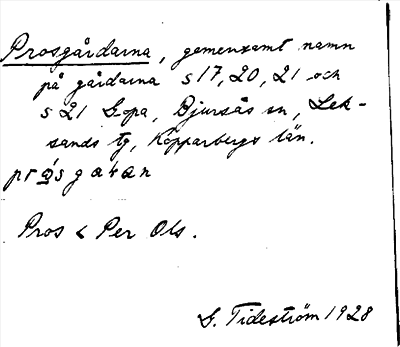 Prosgårdarna, gemensamt namn
på gårdarna s 17, 20, 21 och
s 21 Sopa, Bjursås sn, Lek-
sands tg, Kopparbergs län.
Pros < Per Ols.
G. Tideström 1928